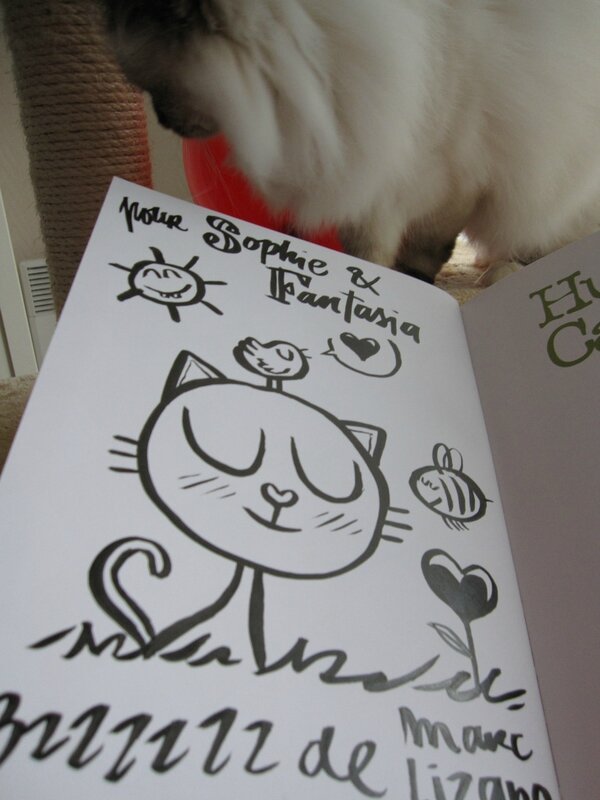 pour Sophie &
Fantasia
Bzzzzzz de Marc
Lizano
Hu
Ca